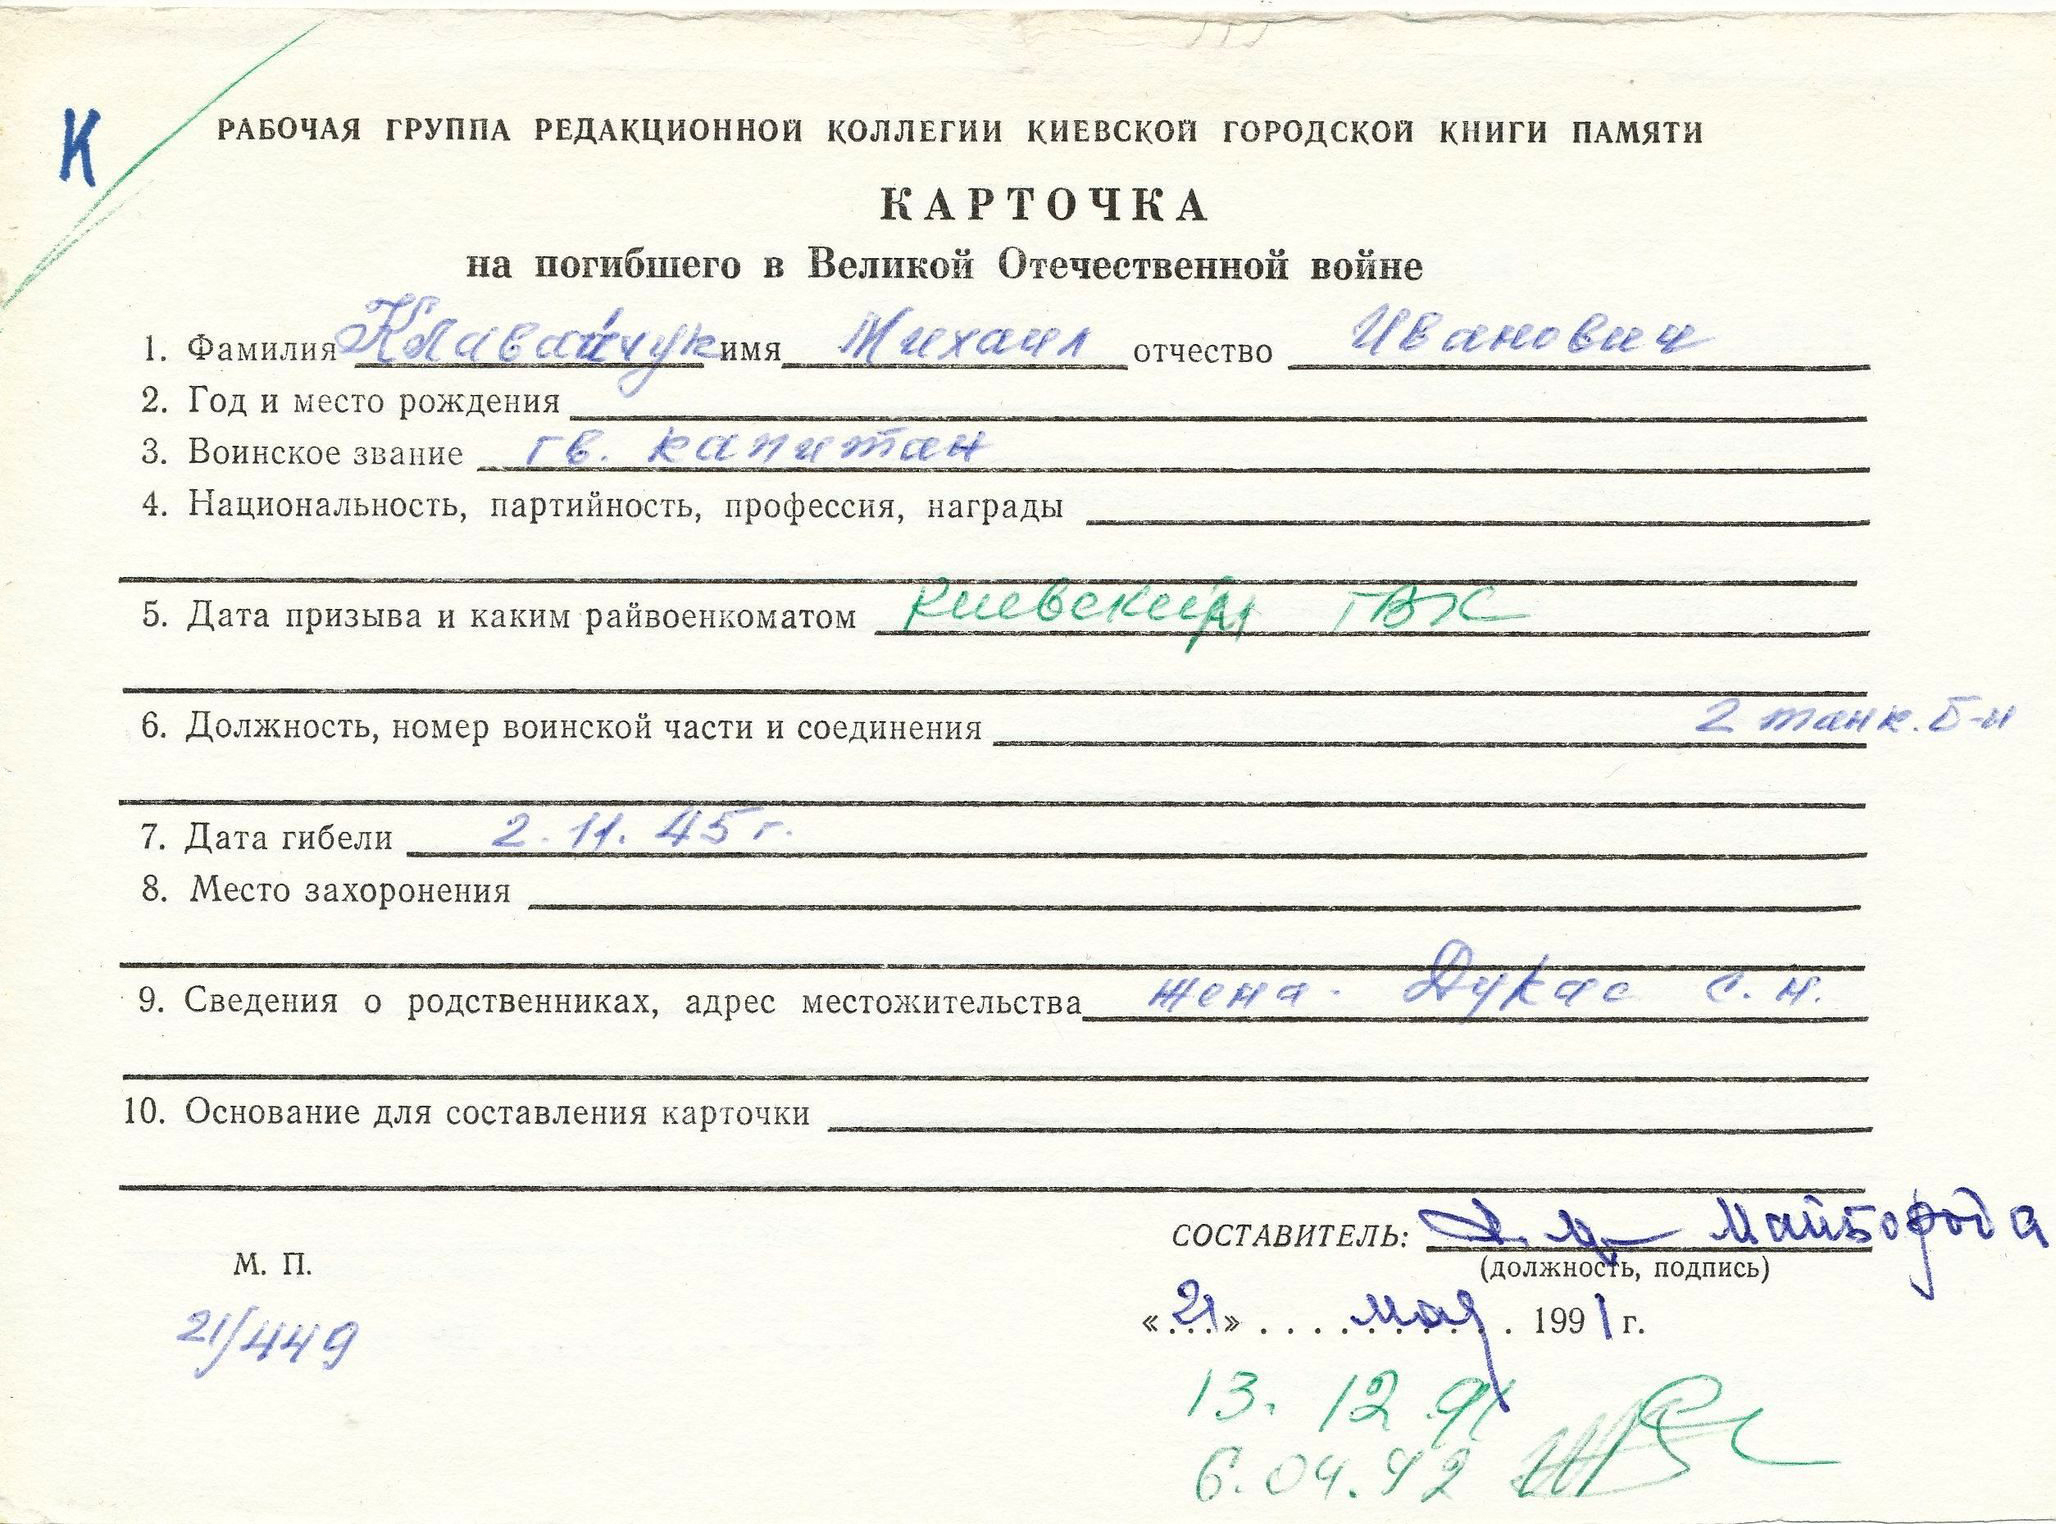 К
РАБОЧАЯ ГРУППА РЕДАКЦИОННОЙ КОЛЛЕГИИ КИЕВСКОЙ ГОРОДСКОЙ КНИГИ ПАМЯТИ
КАРТОЧКА
на погибшего в Великой Отечественной войне
1. Фамилия имя Михаил отчество Иванович
2. Год и место рождения
3. Воинское звание гв. капитан
4. Национальность, партийность, профессия, награды
5. Дата призыва и каким райвоенкоматом Киевским ГВК
6. Должность, номер воинской части и соединения 2 танк. б-н
7. Дата гибели 2.11.45 г.
8. Место захоронения
9. Сведения о родственниках, адрес местожительства жена - Дукас С. Н.
10. Основание для составления карточки
СОСТАВИТЕЛЬ: Майборода
М. П. (должность, подпись)
21/449 «21» мая 1991 г.
13. 12. 91
6.04.92